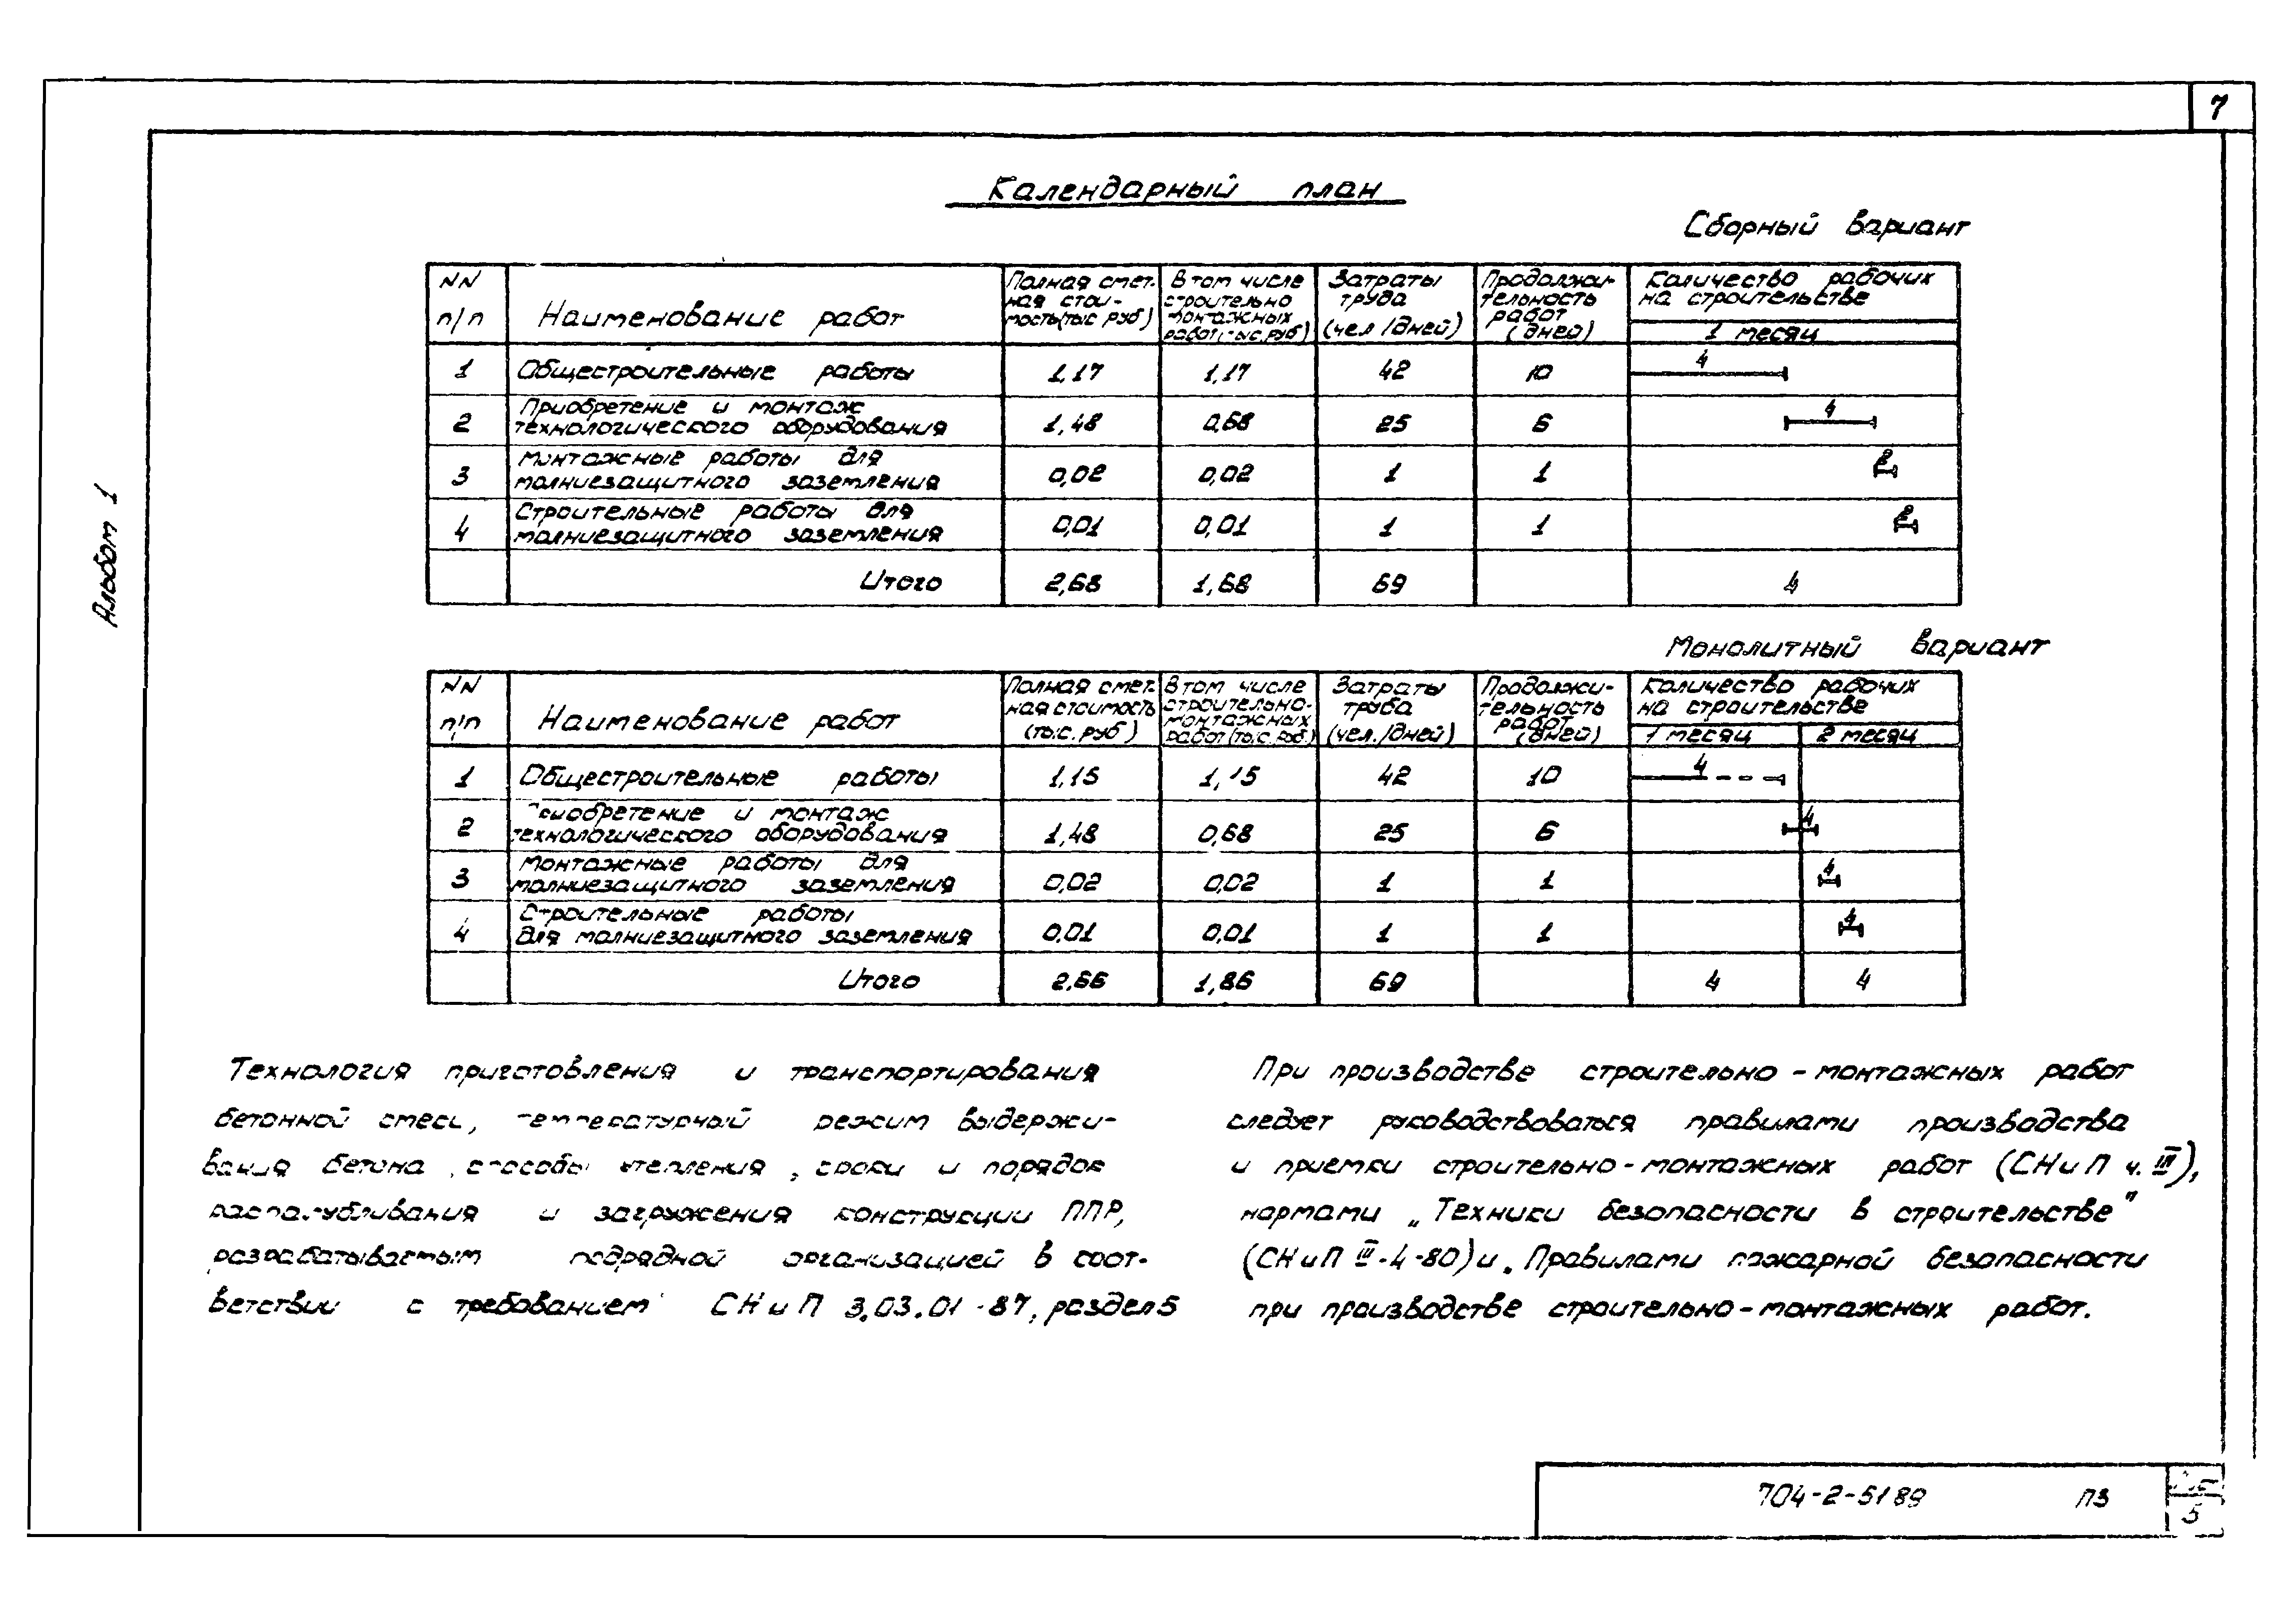 7
Календарный план
Сборный вариант
NN п/п Наименование работ Полная смет- ная стои- мость(тыс руб) В том числе строительно монтажных работ(тыс.руб) Затраты труда (чел/дней) Продолжи- тельность работ (дней) Количество рабочих на строительстве
1 месяц
1 Общестроительные работы 1,17 1,17 42 10 4
2 Приобретение и монтаж технологического оборудования 1,48 0,68 25 6 4
3 Монтажные работы для молниезащитного заземления 0,02 0,02 1 1 2
4 Строительные работы для молниезащитного заземления 0,01 0,01 1 1 2
Итого 2,68 1,68 69 4
Монолитный вариант
NN п/п Наименование работ Полная смет- ная стоимость (тыс. руб) В том числе строительно- монтажных работ(тыс. руб.) Затраты труда (чел./дней) Продолжи- тельность работ (дней) Количество рабочих на строительстве
1 месяц 2 месяц
1 Общестроительные работы 1,15 1,15 42 10 4
2 Приобретение и монтаж технологического оборудования 1,48 0,68 25 6 4
3 Монтажные работы для молниезащитного заземления 0,02 0,02 1 1 4
4 Строительные работы для молниезащитного заземления 0,01 0,01 1 1 4
Итого 2,66 1,86 69 4 4
Технология приготовления и транспортирования
бетонной смеси, температурный режим выдержи-
вания бетона, способы утепления, сроки и порядок
распалубливания и загружения конструкции ППР,
разрабатываемым подрядной организацией в соот-
ветствии с требованием СНиП 3.03.01-87, раздел 5
При производстве строительно-монтажных работ
следует руководствоваться правилами производства
и приемки строительно-монтажных работ (СНиП ч. III),
нормами „Техники безопасности в строительстве"
(СНиП III-4-80) и „Правилами пожарной безопасности
при производстве строительно-монтажных работ.
Альбом 1
704-2-51 89 ПЗ
5